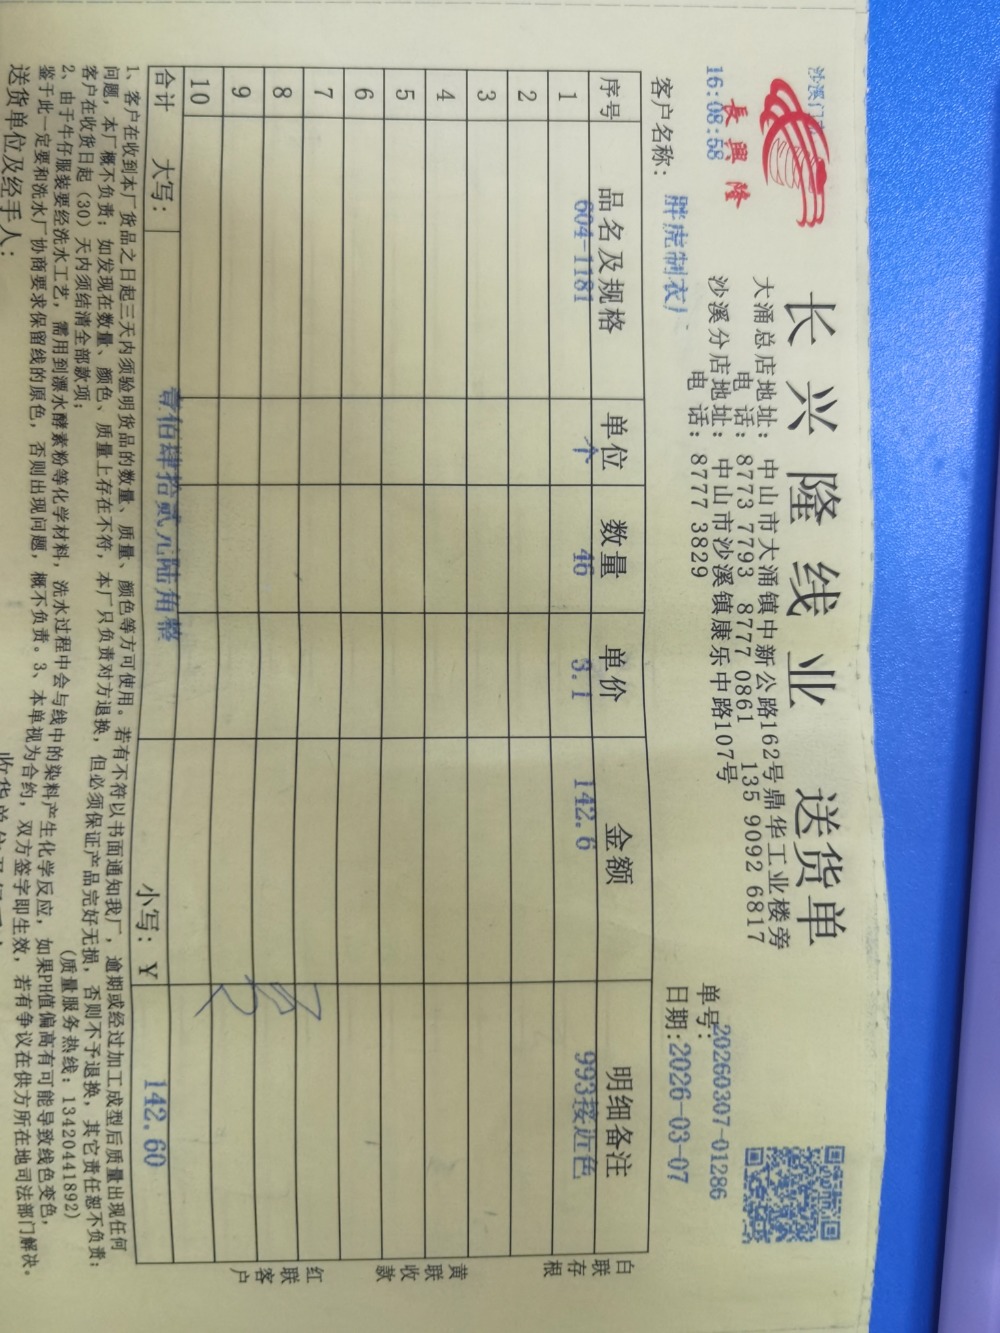 長興隆
16:08:58
长兴隆线业 送货单
大涌总店地址：中山市大涌镇中新公路162号鼎华工业楼旁
电 话：8773 7793 8777 0861 135 9092 6817
沙溪分店地址：中山市沙溪镇康乐中路107号
电 话：8777 3829
单号：20260307-01286
客户名称：胖虎制衣厂
日期：2026-03-07
序号 品名及规格 单位 数量 单价 金额 明细备注
1 604-1181 个 46 3.1 142.6 993接近色
2
3
4
5
6
7
8
9
10
合计 大写：壹佰肆拾贰元陆角整 小写：¥ 142.60
白联存根
黄联收款
红联客户
1、客户在收到本厂货品之日起三天内须验明货品的数量、质量、颜色等方可使用。若有不符以书面通知我厂，逾期或经过加工成型后质量出现任何
问题，本厂概不负责；如发现在数量、颜色、质量上存在不符，本厂只负责对方退换，但必须保证产品完好无损，否则不予退换，其它责任恕不负责；
客户在收货日起（30）天内须结清全部款项； （质量服务热线：13420441892）
2、由于牛仔服装要经洗水工艺，需用到漂水酵素粉等化学材料，洗水过程中会与线中的染料产生化学反应，如果PH值偏高有可能导致线色变色，
鉴于此一定要和洗水厂协商要求保留线的原色，否则出现问题，概不负责。3、本单视为合约，双方签字即生效，若有争议在供方所在地司法部门解决。
送货单位及经手人：